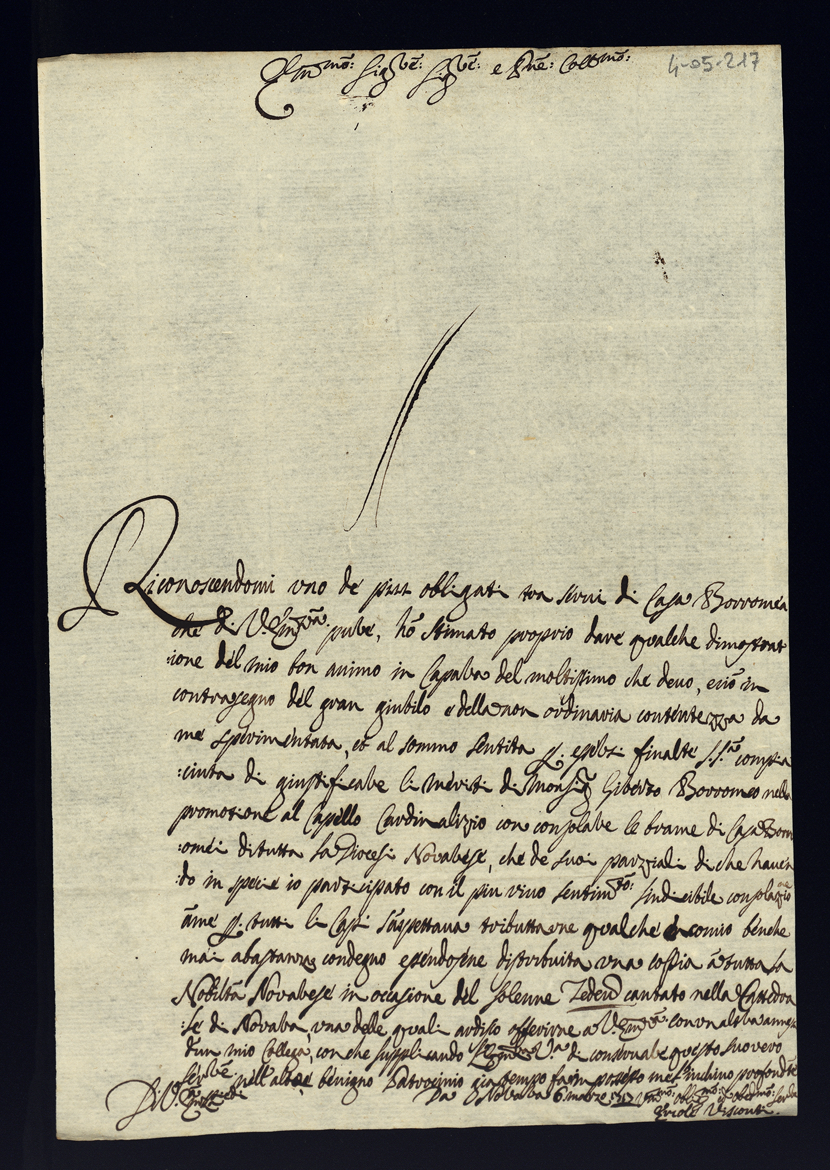 Ill.mo Sig.re Sig.re e P.ne Coll.mo
4-05-217
Riconoscendomi uno de piu obligati tra servi di Casa Borromea
che di V. pure, hò stimato proprio dare qualche dimostrat
:ione del mio bon animo in Caparra del moltissimo che devo, e in
contrasegno del gran giubilo e della non ordinaria contentezza da
me sperimentata, et al sommo sentita p. essersi finalte S. S.tà compia
:ciuta di giustificare li meriti di Monsig.r Giberto Borromeo nella
promotione al Capello Cardinalizio con consolare le brame di Casa Borr
:omei di tutta la Diocesi Novarese, che de suoi parziali di che haven
:do in specie io participato con il piu vivo sentim.to indicibile consolazio
àme p. tutti li Capi s'aspettava tributtarne qualche encomio benche
mai abastanza condegno essendosene distribuita una coppia à tutta la
Nobiltà Novarese in occasione del solenne Tedeum cantato nella Cattedra
:le di Novara, una delle quali ardisco offerirne a V. con un altra annessa
d'un mio Collega, con che supplicando V.a di conservare questo suo vero
ser.re nell'alto, e benigno Patrocinio gia tempo fa in possesso me l'inchino profond.te
D. V.
Da Novara 6 marzo 1717
Ercole Visconti